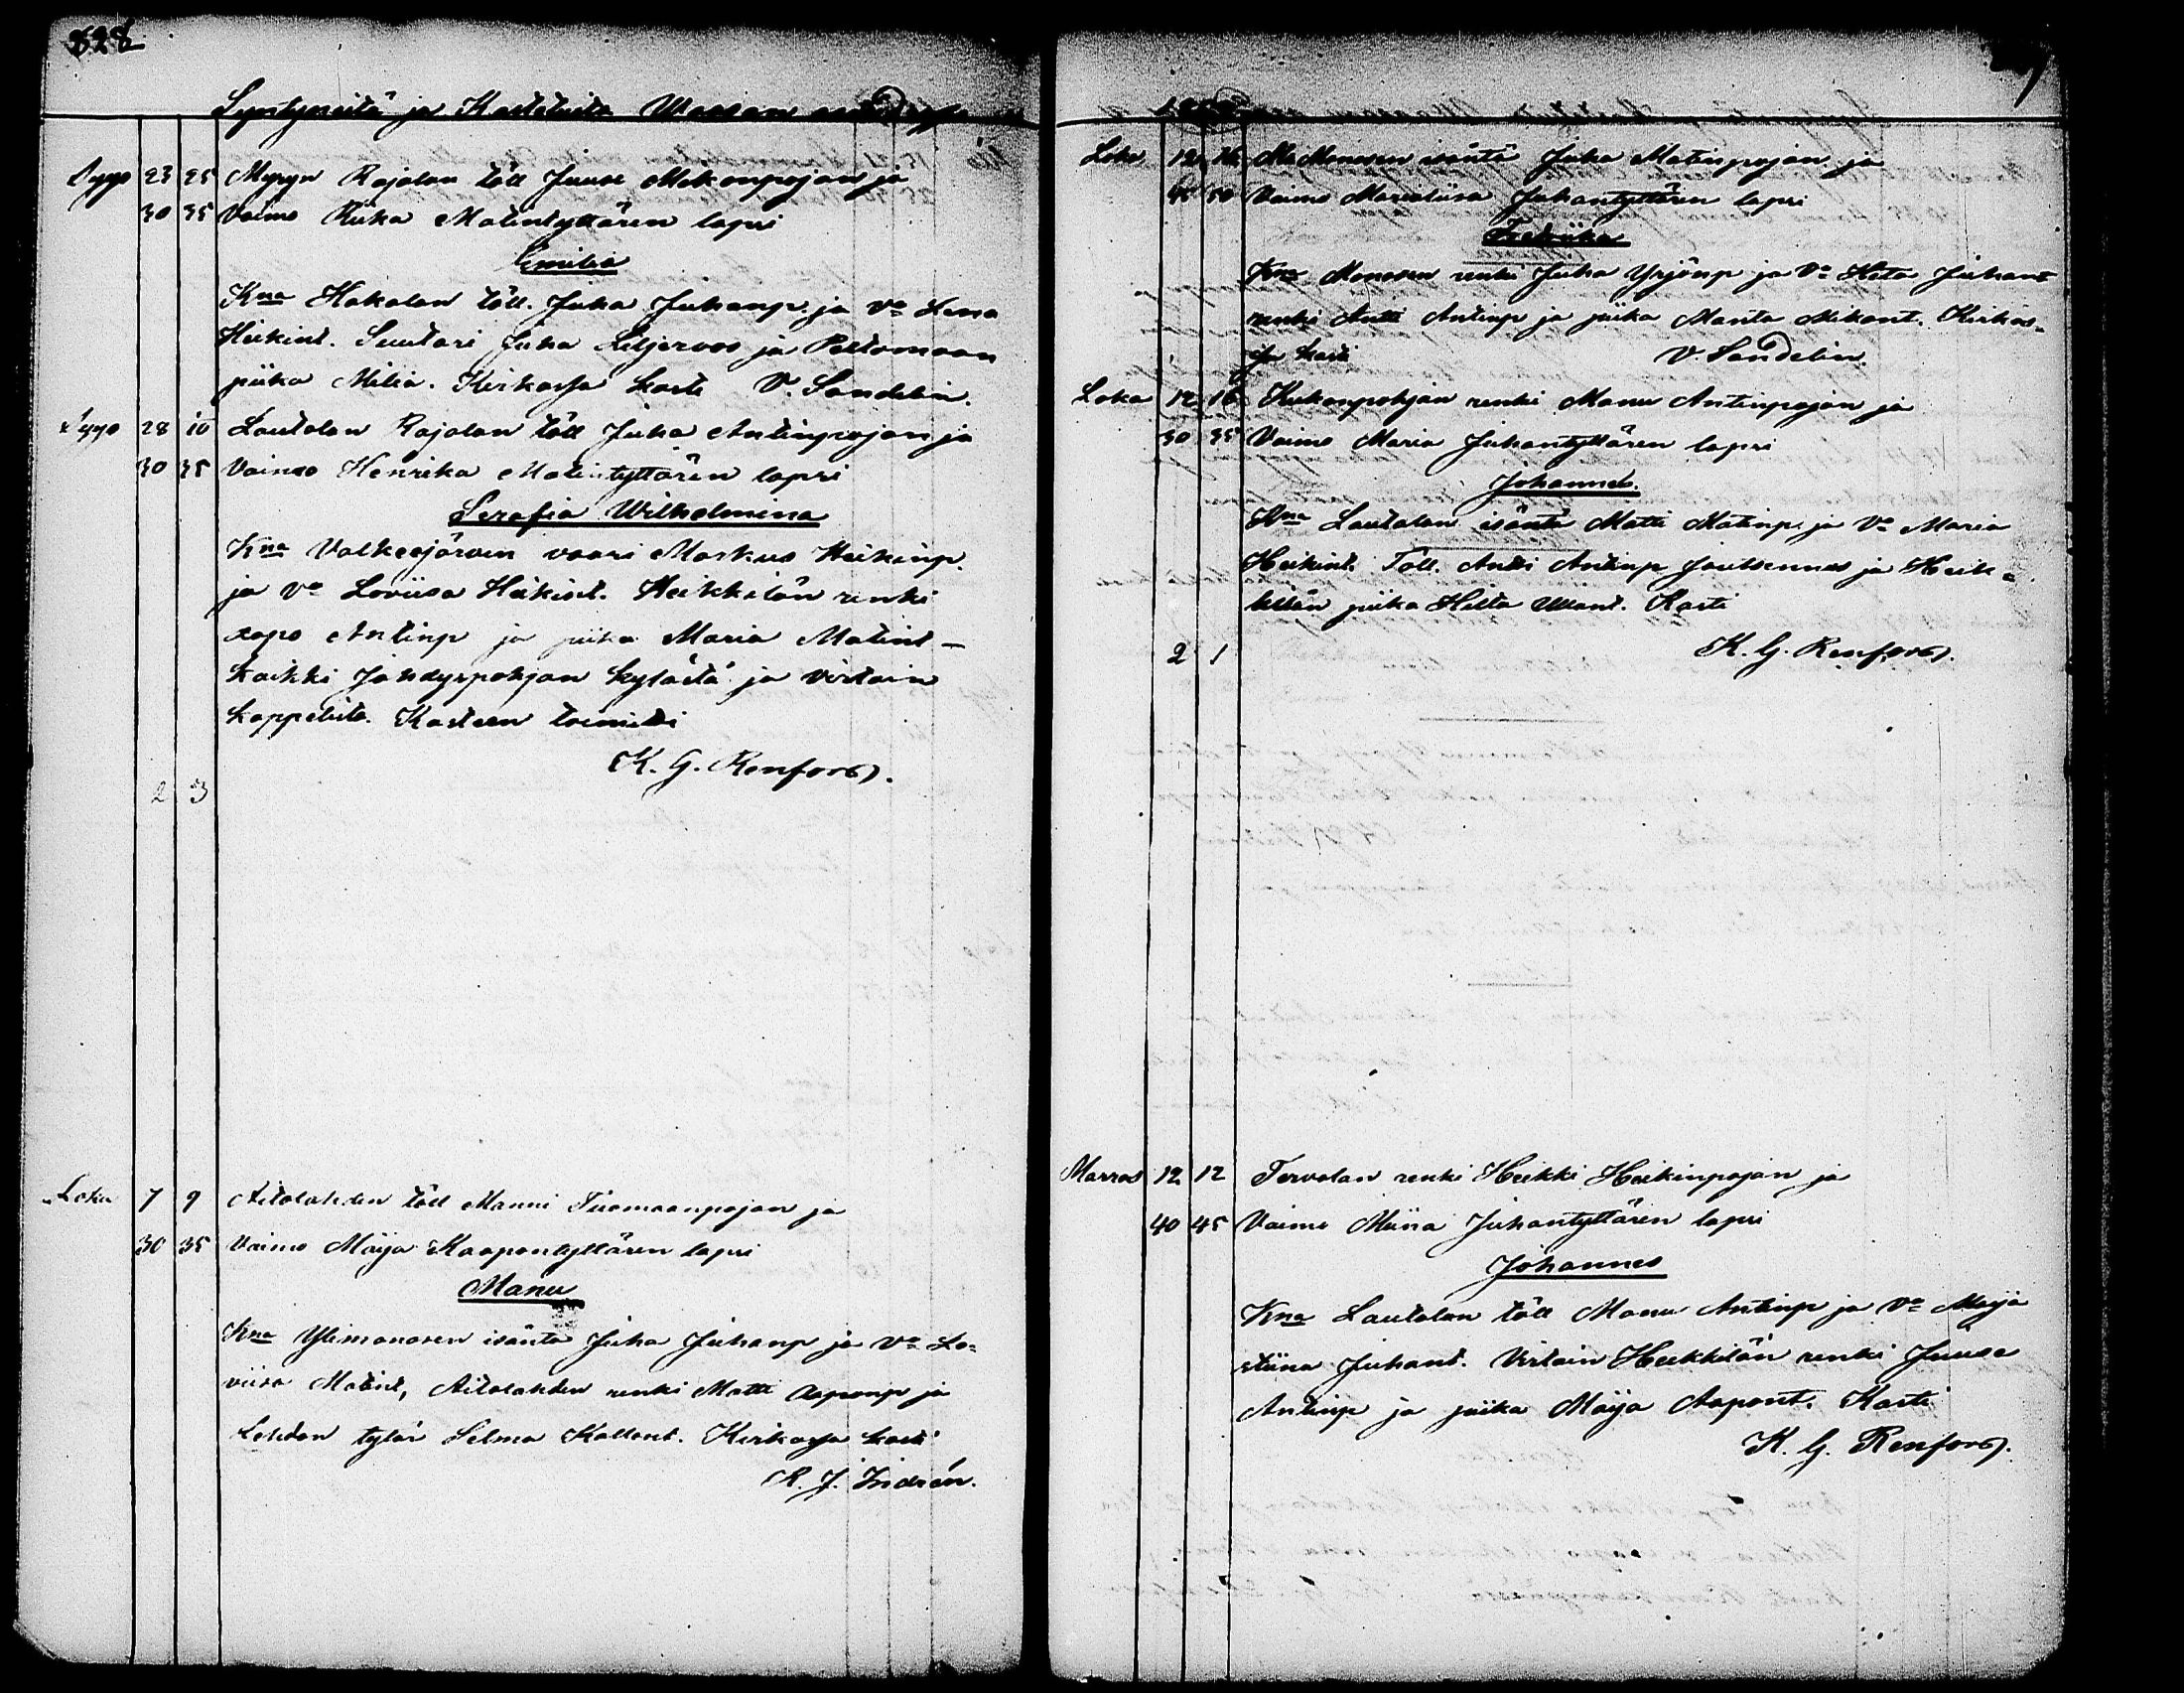 828
Syntyneitä ja Kastetuita Waasan
Syys 23 25 Myryn Rajalan töll Juuse Mikonpojan ja
30 35 Vaimo Riika Matintyttären lapsi
Emilia
Kna Hakalan töll. Juha Juhanp. ja Vo Lena
Heikint. Suutari Juha Liljeroos ja Peltomaan
piika Milia. Kirkossa kasti V. Sandelin.
Syys 28 10 Lautalan Rajalan töll Juha Antinpojan ja
30 35 Vaimo Henrika Matintyttären lapsi
Serafia Wilhelmiina
Kna Valkeejärven vaari Markus Heikinp.
ja vo Loviisa Heikint. Heikkilän renki
Aapo Antinp ja piika Maria Matint -
kaikki Jähdyspohjan kylästä ja Virtain
kappelista. Kasteen toimitti
K. G. Renfors.
2 3
Loka 7 9 Aitolahden töll Manni Tuomaanpojan ja
30 35 Vaimo Maija Kaapontyttären lapsi
Manu
Kna Ylimanasen isäntä Juha Juhanp ja Vo Lo-
viisa Matint, Aitolahden renki Matti Aaponp ja
Lehdon tytär Selma Kallent. Kirkossa kasti
K. J. Indrén.
Loka 12 16 Monosen isäntä Juha Matinpojan ja
45 50 Vaimo Marialiisa Juhantyttären lapsi
Fredriika
Kna Monosen renki Juha Yrjönp ja Vo Heta Juhant
renki Antti Antinp ja piika Manta Mikont. Kirkos-
sa kasti V. Sandelin.
Loka 12 16 Kukonpohjan renki Manu Antinpojan ja
30 35 Vaimo Maria Juhantyttären lapsi
Johannes.
Kna Lautalan isäntä Matti Matinp. ja Vo Maria
Heikint. Töll. Antti Antinp Joutsennus ja Heik-
kilän piika Hilta Mant. Kasti
K. G. Renfors.
2 1
Marras 12 12 Tervalan renki Heikki Heikinpojan ja
40 45 Vaimo Miina Juhantyttären lapsi
Johannes
Kna Lautalan töll Manu Antinp ja Vo Maja
stiina Juhant. Virtain Heikkilän renki Juuse
Antinp ja piika Maija Aapont. Kasti
K. G. Renfors.